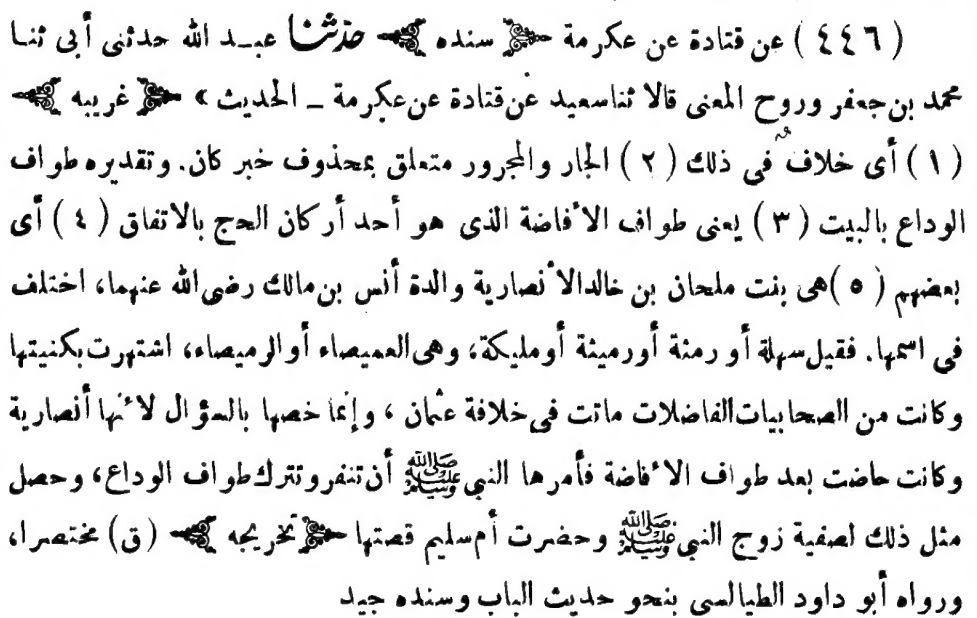 (٤٤٦) عن قتادة عن عكرمة ﴿ سنده ﴾ حدثنا عبد الله حدثنى أبى ثنا
محمد بن جعفر وروح المعنى قالا ثنا سعيد عن قتادة عن عكرمة ـ الحديث » ﴿ غريبه ﴾
(١) أى خلاف فى ذلك (٢) الجار والمجرور متعلق بمحذوف خبر كان. وتقديره طواف
الوداع بالبيت (٣) يعنى طواف الأفاضة الذى هو أحد أركان الحج بالاتفاق (٤) أى
بعضهم (٥) هى بنت ملحان بن خالد الأنصارية والدة أنس بن مالك رضى الله عنهما، اختلف
فى اسمها. فقيل سهلة أو رمثة أو رميثة أو مليكة، وهى العميصاء أو الرميصاء، اشتهرت بكنيتها
وكانت من الصحابيات الفاضلات ماتت فى خلافة عثمان، وإنما خصها بالسؤال لأنها أنصارية
وكانت حاضت بعد طواف الأفاضة فأمرها النبى ﷺ أن تنفر وتترك طواف الوداع، وحصل
مثل ذلك لصفية زوج النبى ﷺ وحضرت أم سليم قصتها ﴿ تخريجه ﴾ (ق) مختصرا،
ورواه أبو داود الطيالسى بنحو حديث الباب وسنده جيد